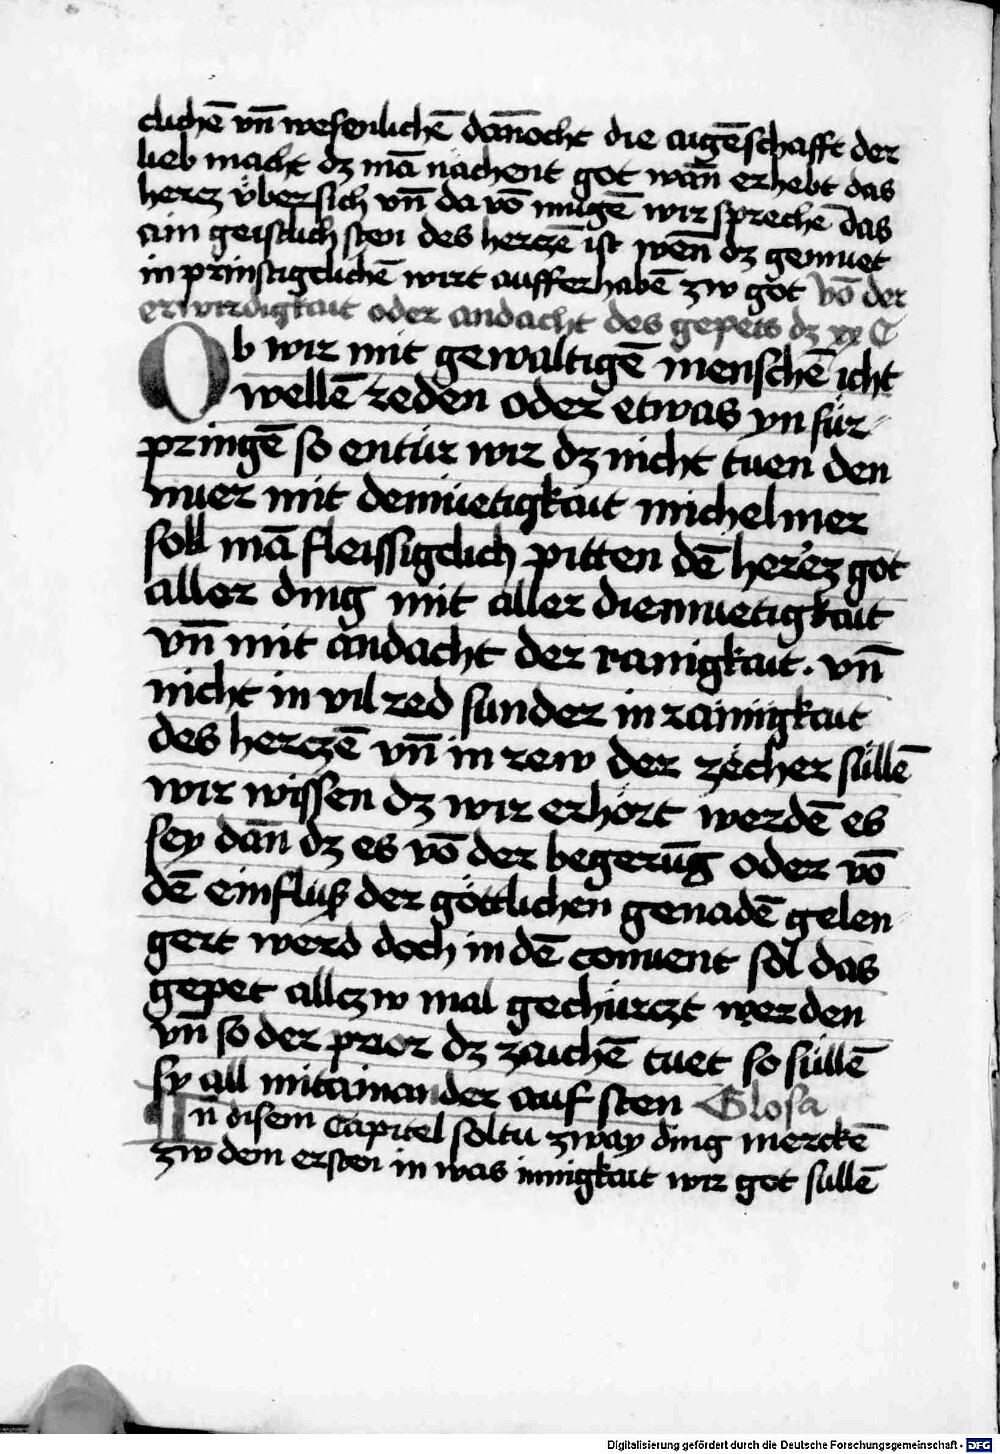 clichē vn̄ wesenlichē dan̄ocht die aigēschafft der
lieb macht dz mā nachent got wan̄ erhebt das
hercz vbersich vn̄ da vō mugē wir sprechē das
ain geistlich sten des herczē ist wen̄ dz gemuet
inprinstigclichē wirt aufferhabē zw got vō der
erwirdigkait oder andacht des gepets dz xx C
Ob wir mit gewaltigē menschē icht
wellē reden oder etwas yn für
pringē so entür wir dz nicht tuen den
nuer mit demüetigkait michel mer
soll mā fleissigclich pitten dē herrē got
aller ding mit aller diemuetigkait
vn̄ mit andacht der rainigkait. vn̄
nicht in vil red sunder in rainigkait
des herczē vn̄ in rew der zëcher süllē
wir wissen dz wir erhört werdē es
sey dan̄ dz es vō der begerūg oder vō
dē einfluß der göttlichen genadē gelen
gert werd doch in dē conuent sol das
gepet allczw mal gechürczt werden
vn̄ so der prior dz zaichē tuet so süllē
sy all mitainander auf sten Glosa
In disem Capitel soltu zway ding merckē
zw dem ersten in was innigkait wir got sullē
Digitalisierung gefördert durch die Deutsche Forschungsgemeinschaft - DFG